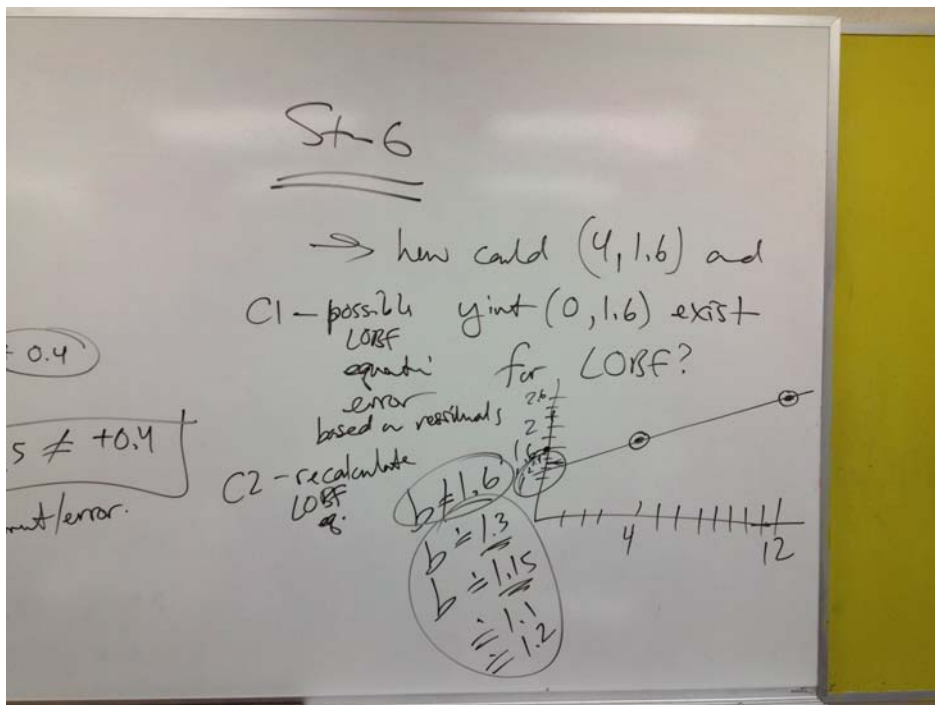 St-6
→ how could (4, 1.6) and
yint (0, 1.6) exist
for LOBF?
C1 - possible
LOBF
equati
error
based on residuals
C2 - recalculate
LOBF
eq.
0.4
5 ≠ +0.4
/error.
b ≠ 1.6
b ≐ 1.3
b ≐ 1.15
≐ 1.1
≐ 1.2
2.6
2
1.6
4
12